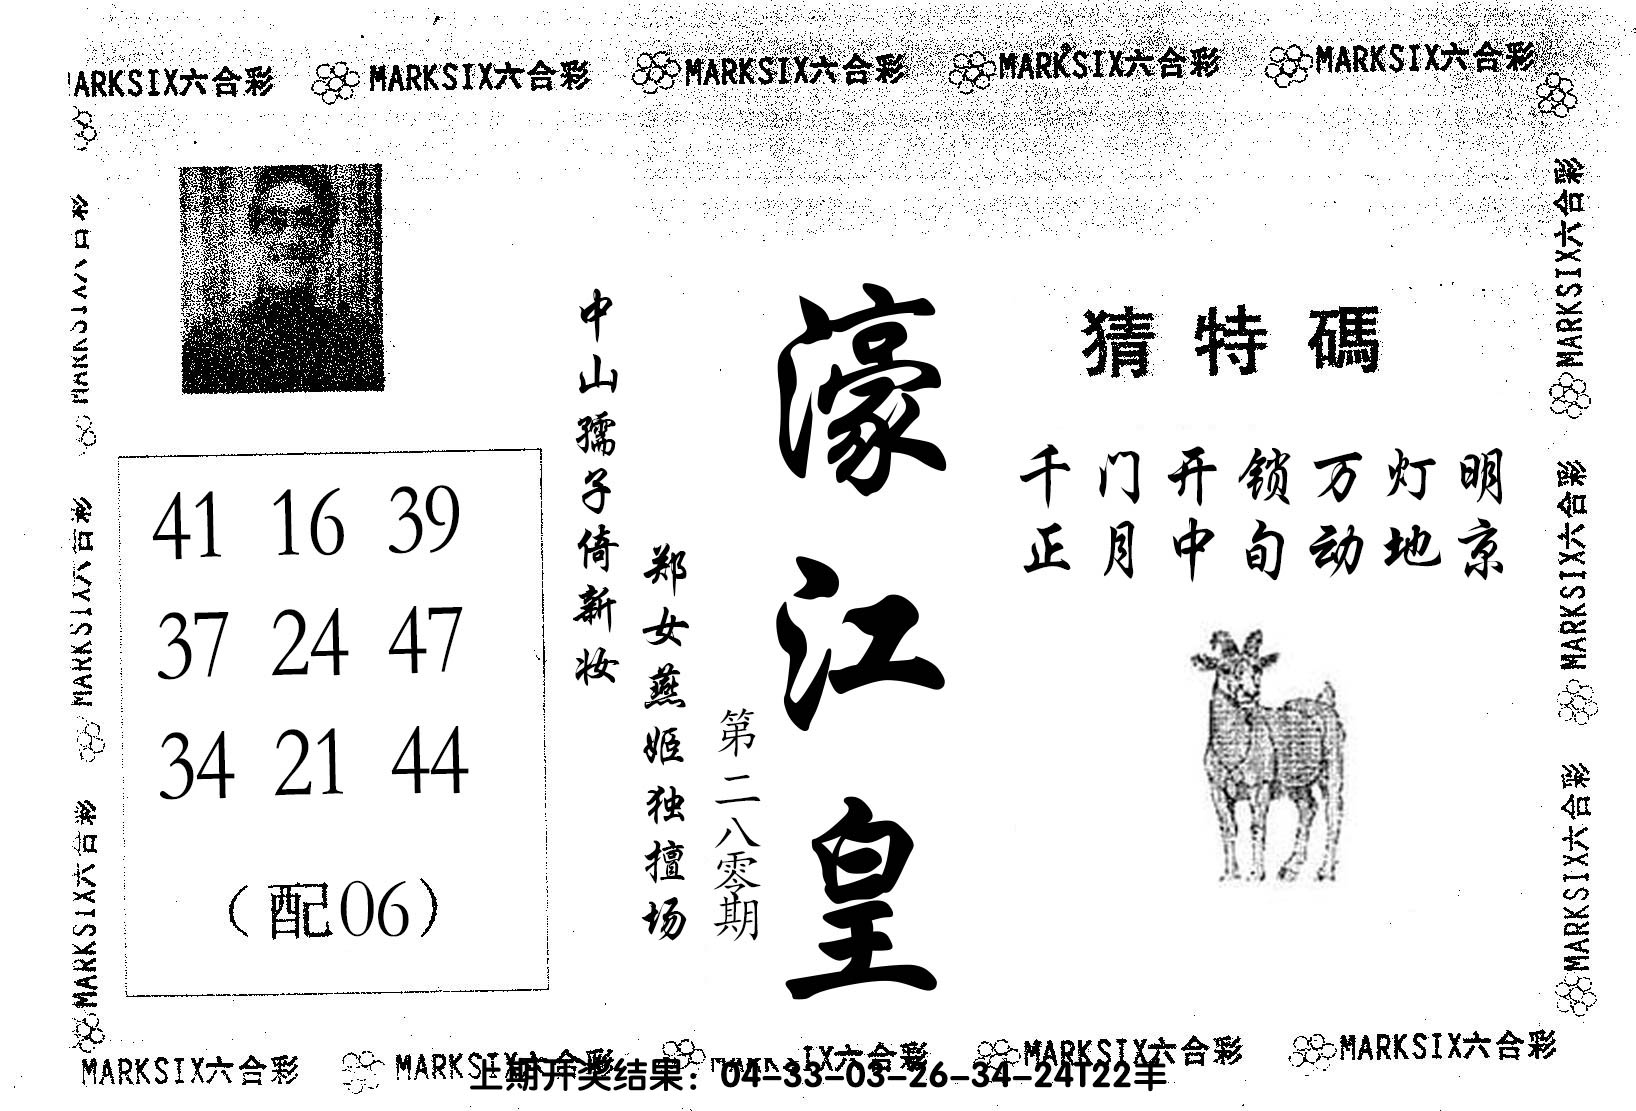 MARKSIX六合彩 MARKSIX六合彩 MARKSIX六合彩 MARKSIX六合彩 MARKSIX六合彩
MARKSIX六合彩
MARKSIX六合彩
MARKSIX六合彩
MARKSIX六合彩
MARKSIX六合彩
MARKSIX六合彩
41 16 39
37 24 47
34 21 44
（配06）
中山孺子倚新妆
郑女燕姬独擅场
第二八零期
濠江皇
猜特碼
千门开锁万灯明
正月中旬动地京
MARKSIX六合彩 MARKSIX六合彩 MARKSIX六合彩 MARKSIX六合彩 MARKSIX六合彩
上期开奖结果：04-33-03-26-34-24T22羊